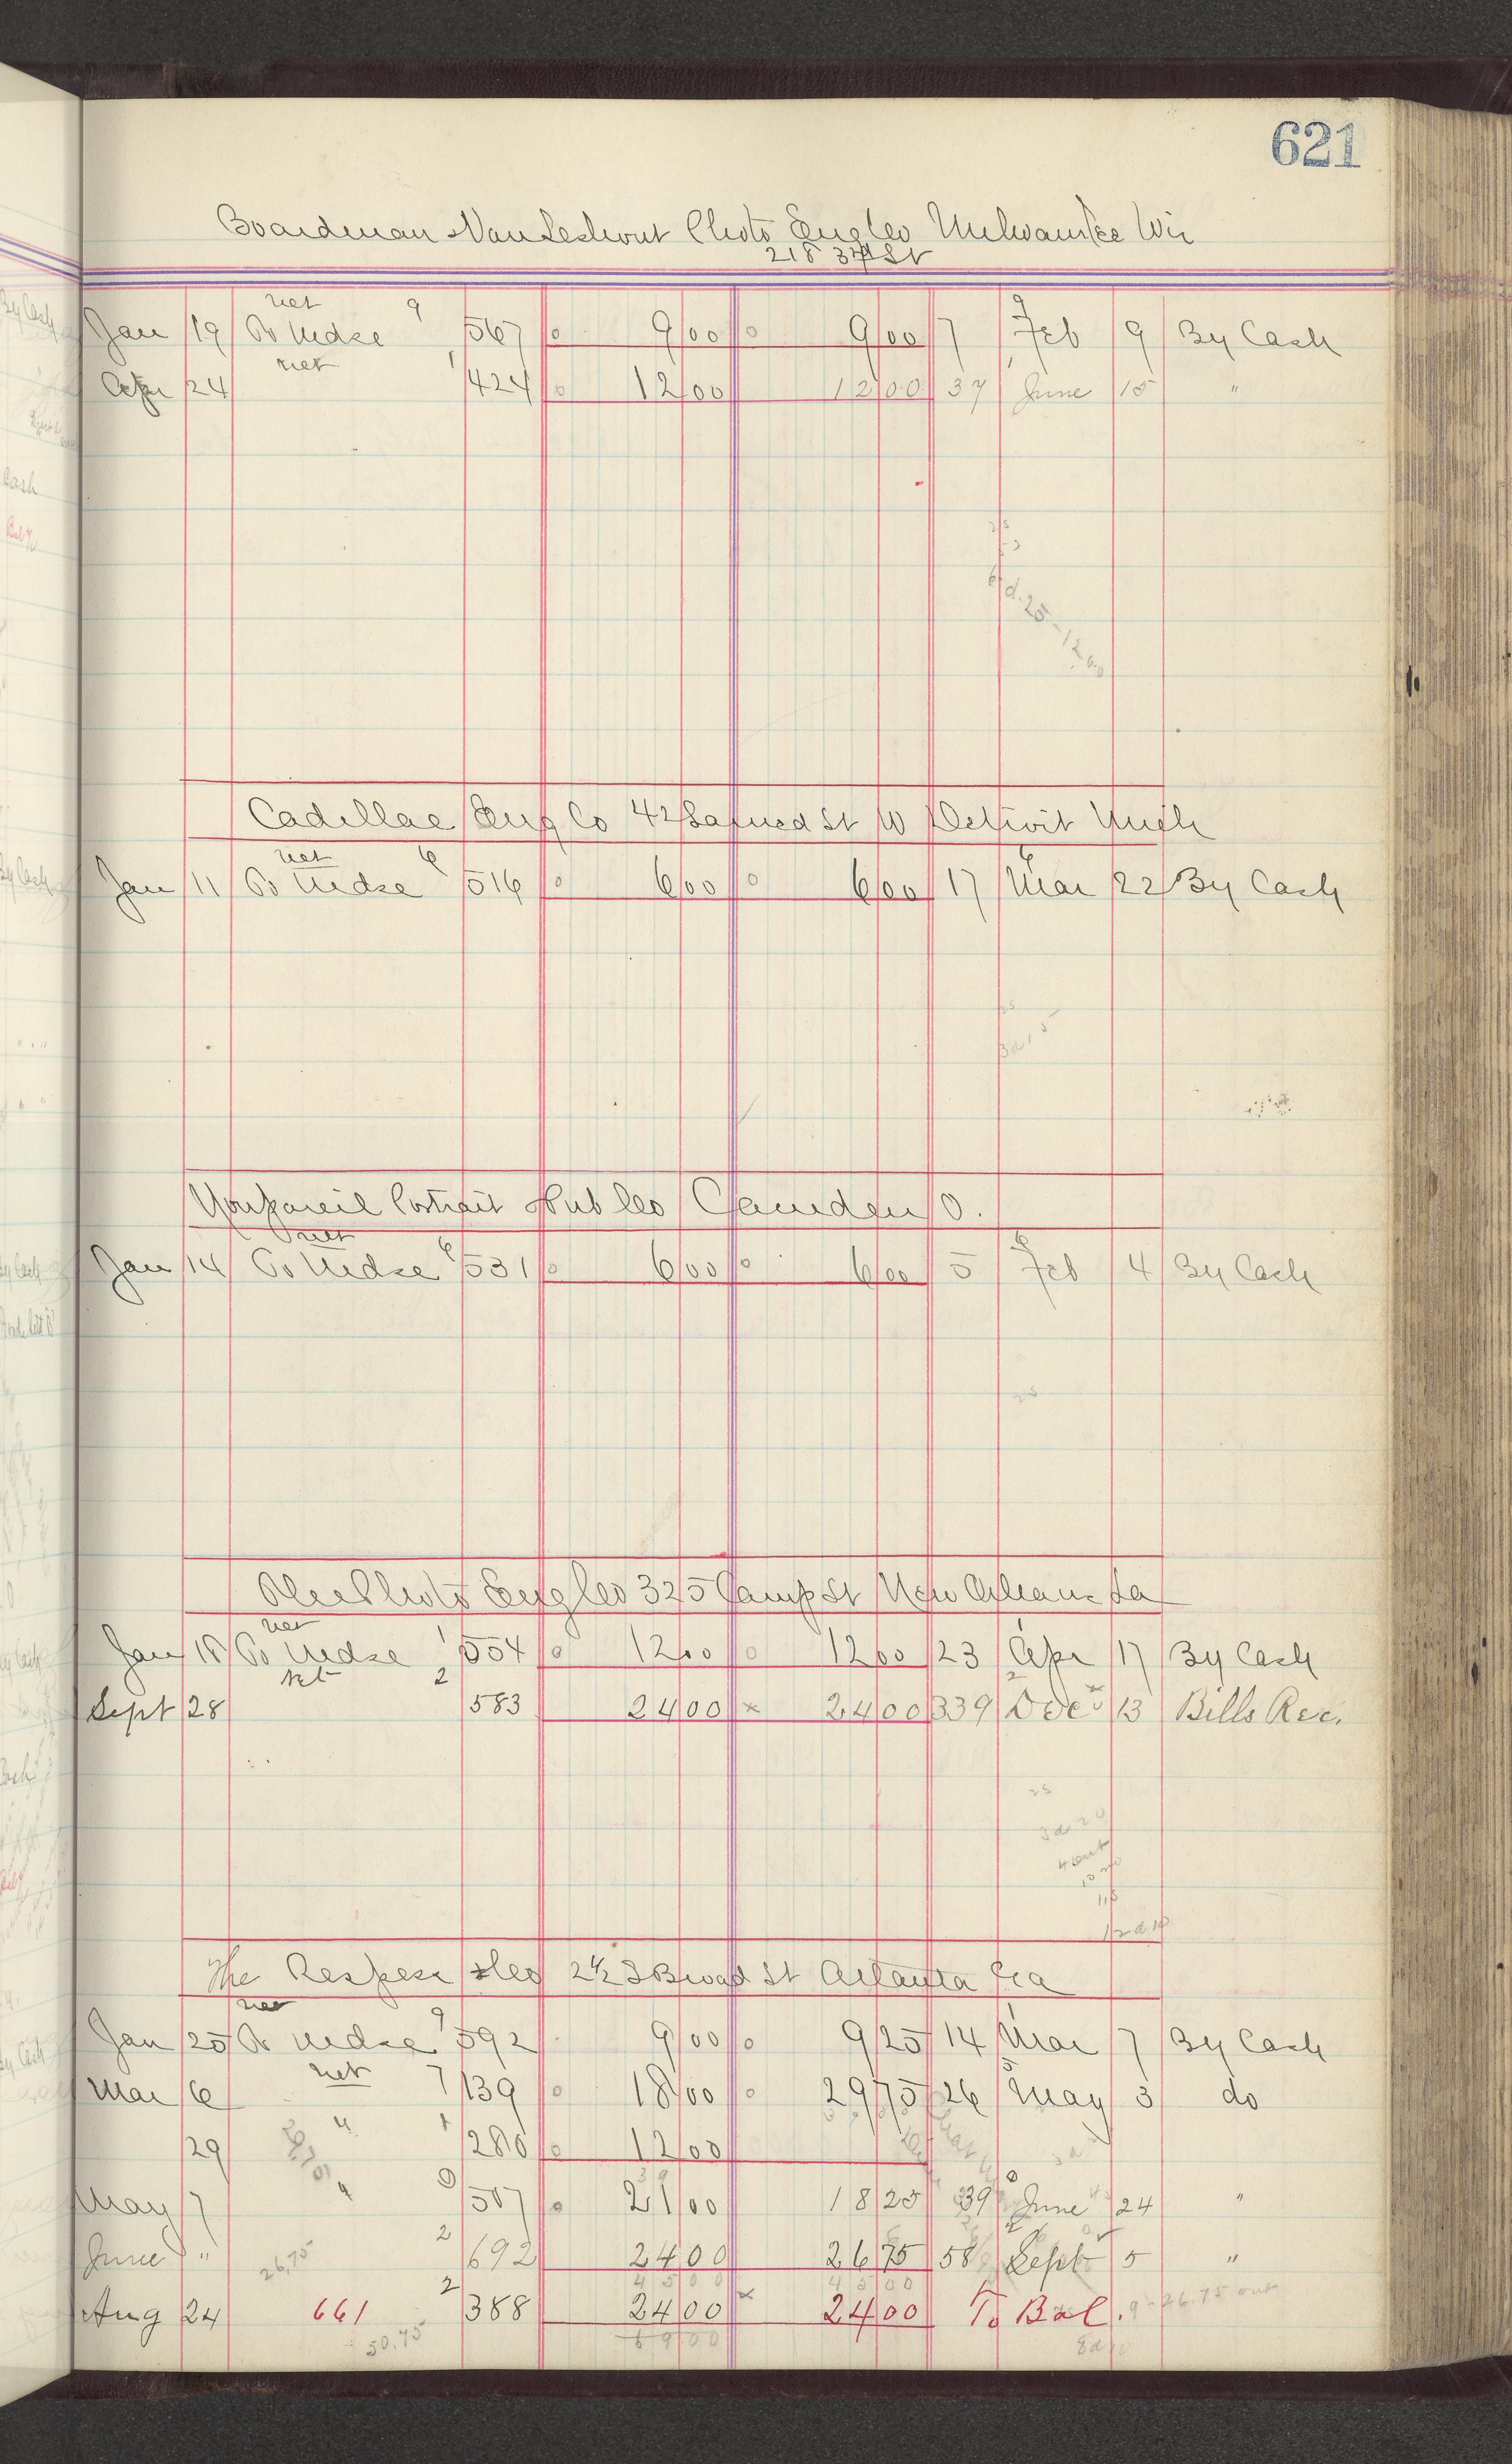 621
Boardman Photo Eng Co Milwaukee Wis
218 3rd St
net 9 9
Jan 19 To Mdse 567 o 9 00 o 9 00 7 Feb 9 By Cash
net 1 1
Apr 24 424 o 12 00 12 00 37 June 15 "
25
6 d. 25 - 12.00
Cadillac Eng Co 42 Larned St W Detroit Mich
net 6 6
Jan 11 To Mdse 516 o 6 00 o 6 00 17 Mar 22 By Cash
25
Nonpareil Portrait Pub Co Camden O.
net 6 6
Jan 14 To Mdse 531 o 6 00 o 6 00 5 Feb 4 By Cash
25
Photo Eng Co 325 Camp St New Orleans La
net 1 1
Jan 18 To Mdse 554 o 12 00 o 12 00 23 Apr 17 By Cash
net 2 2
Sept 28 583 24 00 x 24 00 339 Dec 13 Bills Rec.
25
3 d 20
The Respess Co 2 1/2 S Broad St Atlanta Ga
net 9 1
Jan 25 To Mdse 592 9 00 o 9 25 14 Mar 7 By Cash
net 7 5
Mar 6 139 o 18 00 o 29 75 26 May 3 do
" 1
29 280 o 12 00
39
" 0 0
May 7 507 o 21 00 18 25 39 June 24 "
2
June " 26.75 692 24 00 26 75 58 Sept 5 "
45 00 45 00
2
Aug 24 661 388 24 00 x 24 00 To Bal. 9 - 26.75 out
50.75 69 00